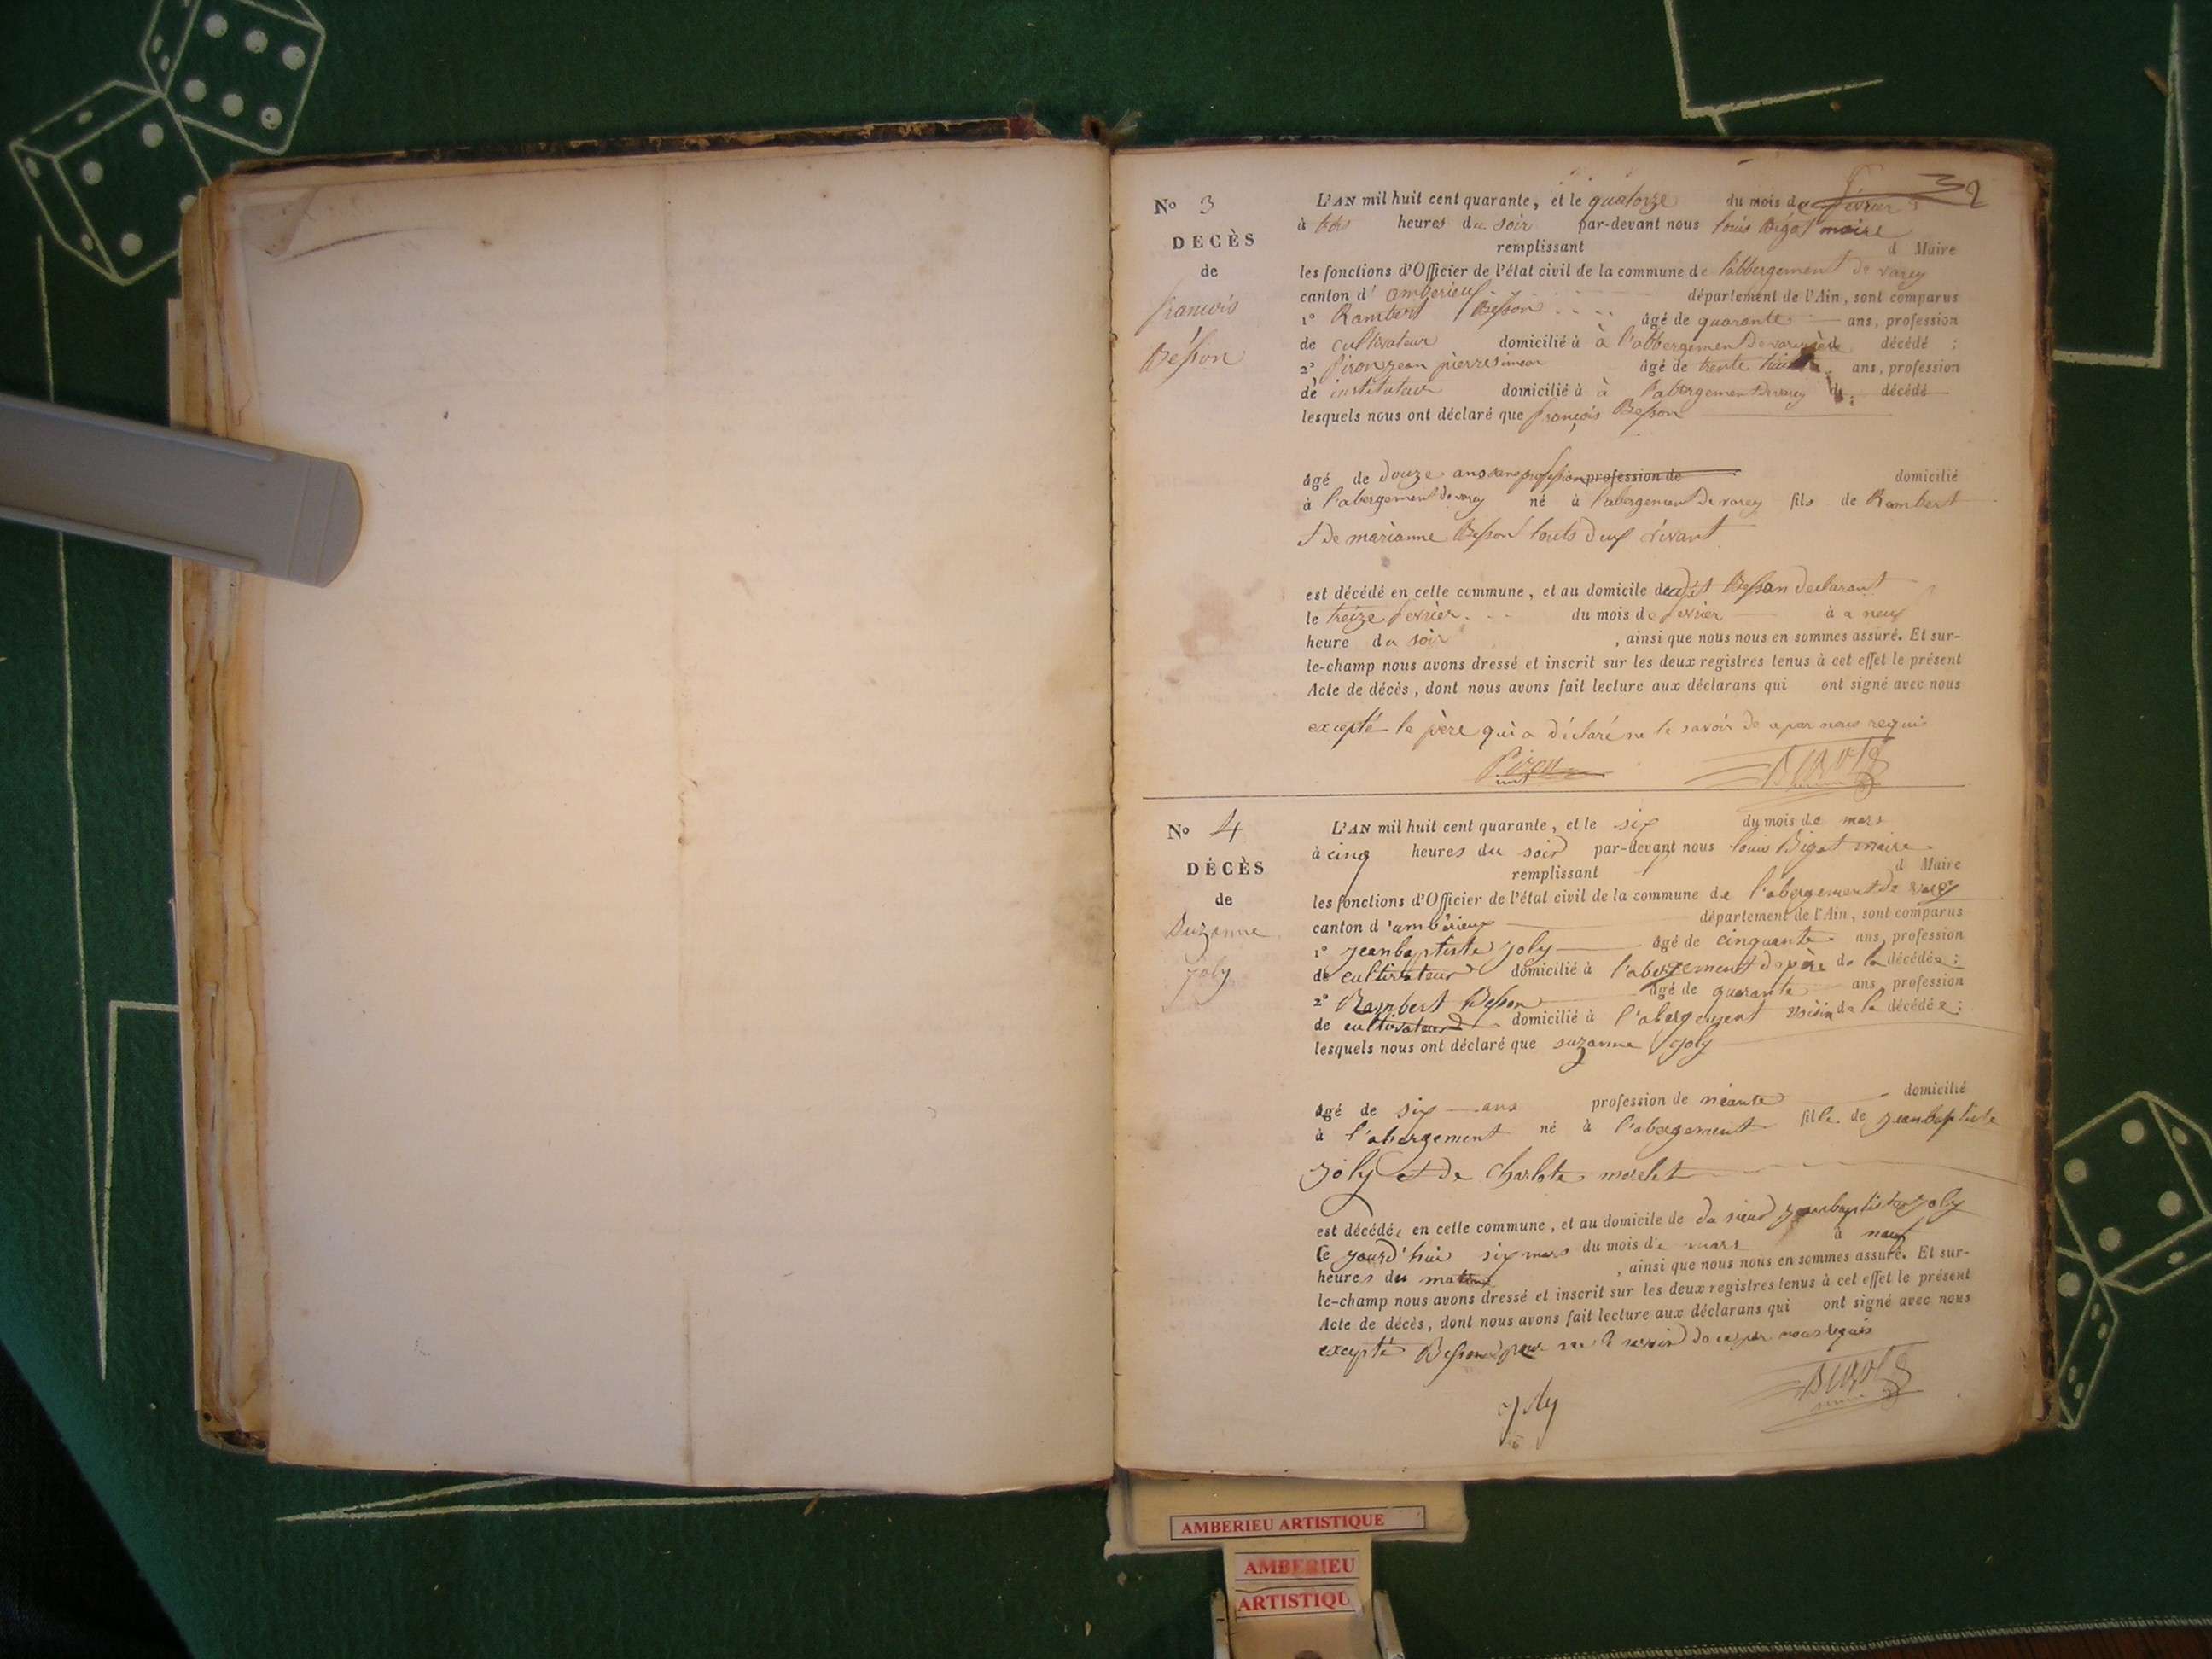 32
N° 3
DECÈS
de
françois
Besson
L'AN mil huit cent quarante, et le quatorze du mois de février
à trois heures du soir par-devant nous louis Bigot maire
remplissant d Maire
les fonctions d'Officier de l'état civil de la commune de l'abbergement de varey
canton d' amberieux département de l'Ain, sont comparus
1° Rambert Besson âgé de quarante ans, profession
de cultivateur domicilié à à l'abbergement de varey père décédé ;
2° Piron jean pierre simeon âgé de trente huit ans, profession
de instituteur domicilié à à l'abergement de varey du décédé
lesquels nous ont déclaré que françois Besson
agé de douze ans sans profession profession de domicilié
à l'abergement de varey né à l'abergement de varey fils de Rambert
et de marianne Besson touts deux vivant
est décédé en cette commune, et au domicile dudit Besson déclarant
le treize fevrier du mois de fevrier à a neuf
heure du soir , ainsi que nous nous en sommes assuré. Et sur-
le-champ nous avons dressé et inscrit sur les deux registres tenus à cet effet le présent
Acte de décès, dont nous avons fait lecture aux déclarans qui ont signé avec nous
excepté le père qui a déclaré ne le savoir de ce par nous requis
Piron BIGOT
N° 4
DÉCÈS
de
Suzanne
joly
L'AN mil huit cent quarante, et le six du mois de mars
à cinq heures du soir par-devant nous louis Bigot maire
remplissant d Maire
les fonctions d'Officier de l'état civil de la commune de l'abergement de varey
canton d'ambérieux département de l'Ain, sont comparus
1° jean baptiste joly âgé de cinquante ans, profession
de cultivateur domicilié à l'abergement père de la décédée ;
2° Rambert Besson âgé de quarante ans profession
de cultivateur domicilié à l'abergement voisin de la décédée ;
lesquels nous ont déclaré que suzanne joly
agé de six ans profession de néante domicilié
à l'abergement né à l'abergement fille de jean baptiste
joly et de charlote morelet
est décédée en cette commune, et au domicile de du sieur jean baptiste joly
Ce jourd'hui six mars du mois de mars à neuf
heures du matin , ainsi que nous nous en sommes assuré. Et sur-
le-champ nous avons dressé et inscrit sur les deux registres tenus à cet effet le présent
Acte de décès, dont nous avons fait lecture aux déclarans qui ont signé avec nous
excepté Besson pour ne le savoir de ce par nous requis
joly BIGOT
AMBERIEU ARTISTIQUE
AMBERIEU
ARTISTIQU